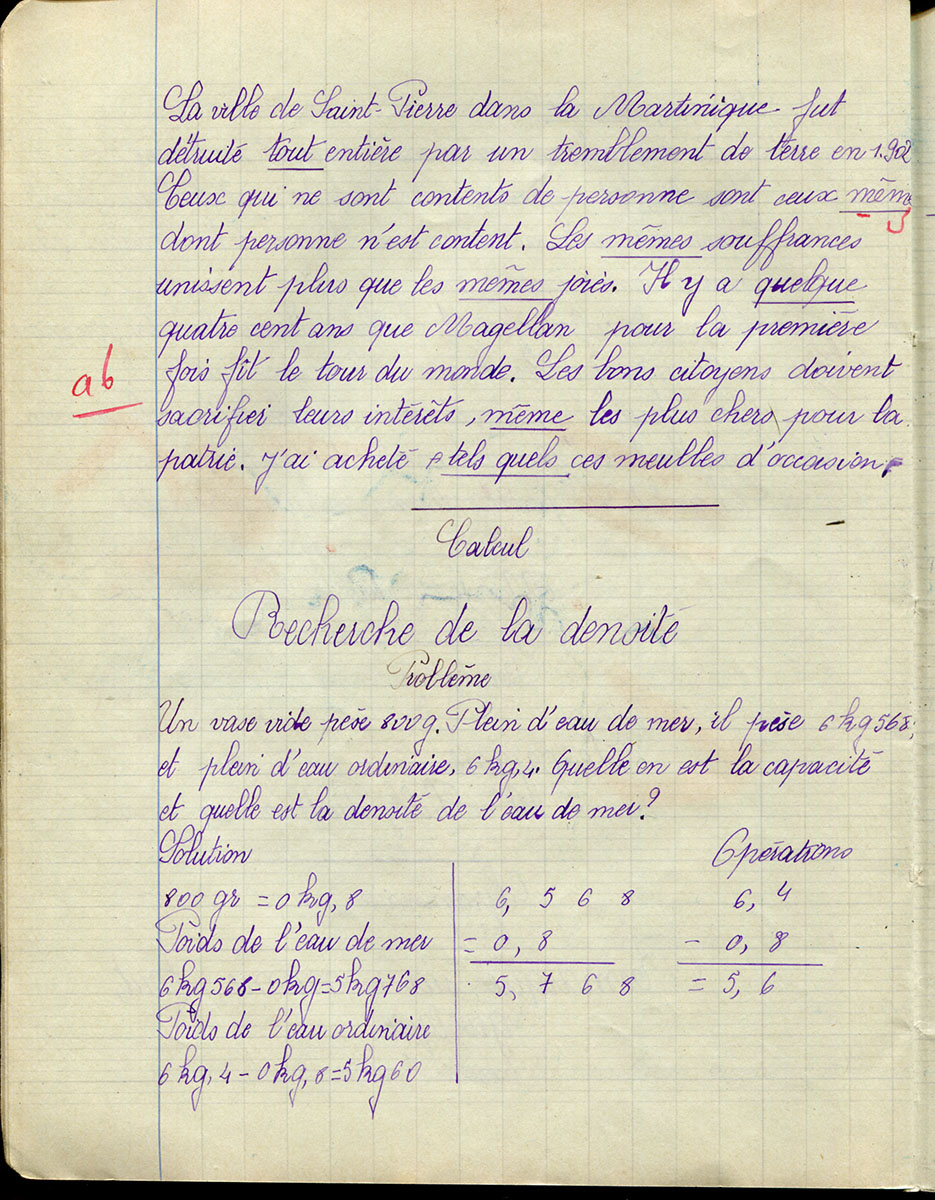 La ville de Saint-Pierre dans la Martinique fut
détruite tout entière par un tremblement de terre en 1.902
Ceux qui ne sont contents de personne sont ceux même
dont personne n'est content. Les mêmes souffrances
unissent plus que les mêmes joies. Il y a quelque
quatre cent ans que Magellan pour la première
fois fît le tour du monde. Les bons citoyens doivent
ab
sacrifier leurs intérêts, même les plus chers pour la
patrie. J'ai acheté tels quels ces meubles d'occasion.
Calcul
Recherche de la densité
Problème
Un vase vide pèse 800g. Plein d'eau de mer, il pèse 6kg568;
et plein d'eau ordinaire, 6kg,4. Quelle en est la capacité
et quelle est la densité de l'eau de mer?
Solution Opérations
800 gr = 0 kg, 8 6, 5 6 8 6, 4
Poids de l'eau de mer = 0, 8 - 0, 8
6kg568-0kg=5kg768 5, 7 6 8 = 5, 6
Poids de l'eau ordinaire
6 kg, 4 - 0kg, 8=5kg60